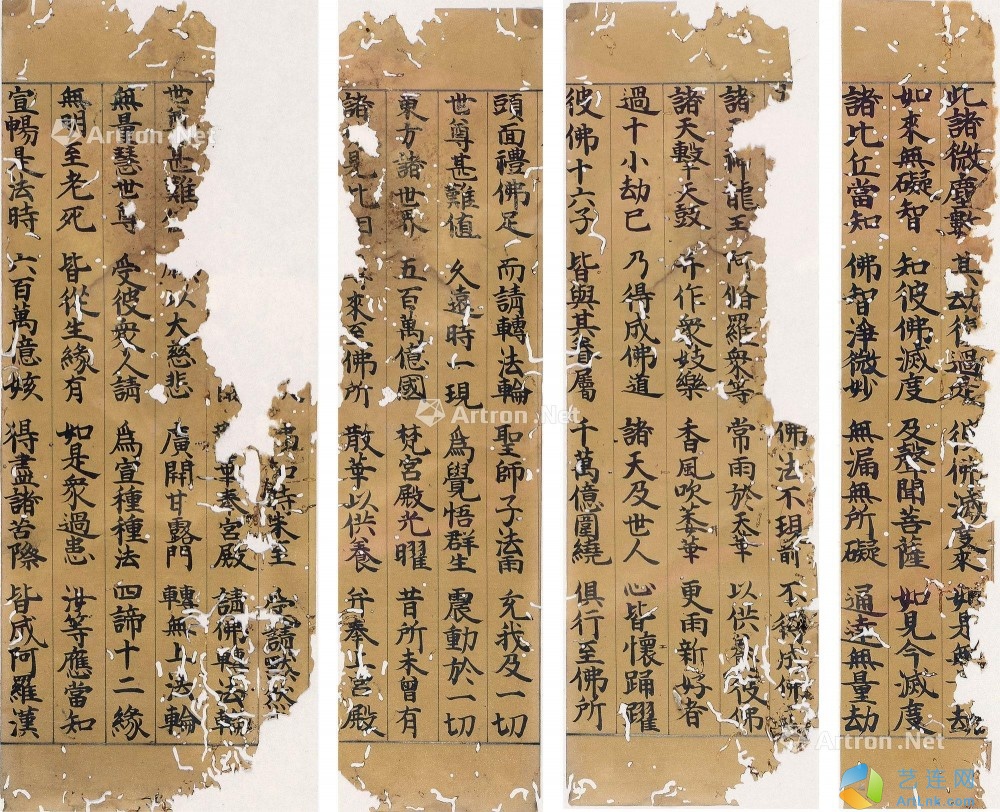 此諸微塵數 其劫復過是 彼佛滅度來 如是無 劫
如來無礙智 知彼佛滅度 及聲聞菩薩 如見今滅度
諸比丘當知 佛智淨微妙 無漏無所礙 通達無量劫
佛法不現前 不得成佛
諸 神龍王 阿脩羅衆等 常雨於天華 以供養彼佛
諸天擊天鼓 并作衆妓樂 香風吹萎華 更雨新好者
過十小劫已 乃得成佛道 諸天及世人 心皆懷踊躍
彼佛十六子 皆與其眷屬 千萬億圍繞 俱行至佛所
頭面禮佛足 而請轉法輪 聖師子法雨 充我及一切
世尊甚難值 久遠時一現 爲覺悟群生 震動於一切
東方諸世界 五百萬億國 梵宮殿光曜 昔所未曾有
諸 見此相 來至佛所 散華以供養 并奉上宮殿
知時未至 受請默然
華奉宮殿 請佛轉法輪
世 甚難 以大慈悲 廣開甘露門 轉無上法輪
無量慧世尊 受彼衆人請 爲宣種種法 四諦十二緣
無明至老死 皆從生緣有 如是衆過患 汝等應當知
宣暢是法時 六百萬億姟 得盡諸苦際 皆成阿羅漢
Artron.Net
Artron.Net
Artron.Net
Artron.Net
艺连网
ArtLnk.com